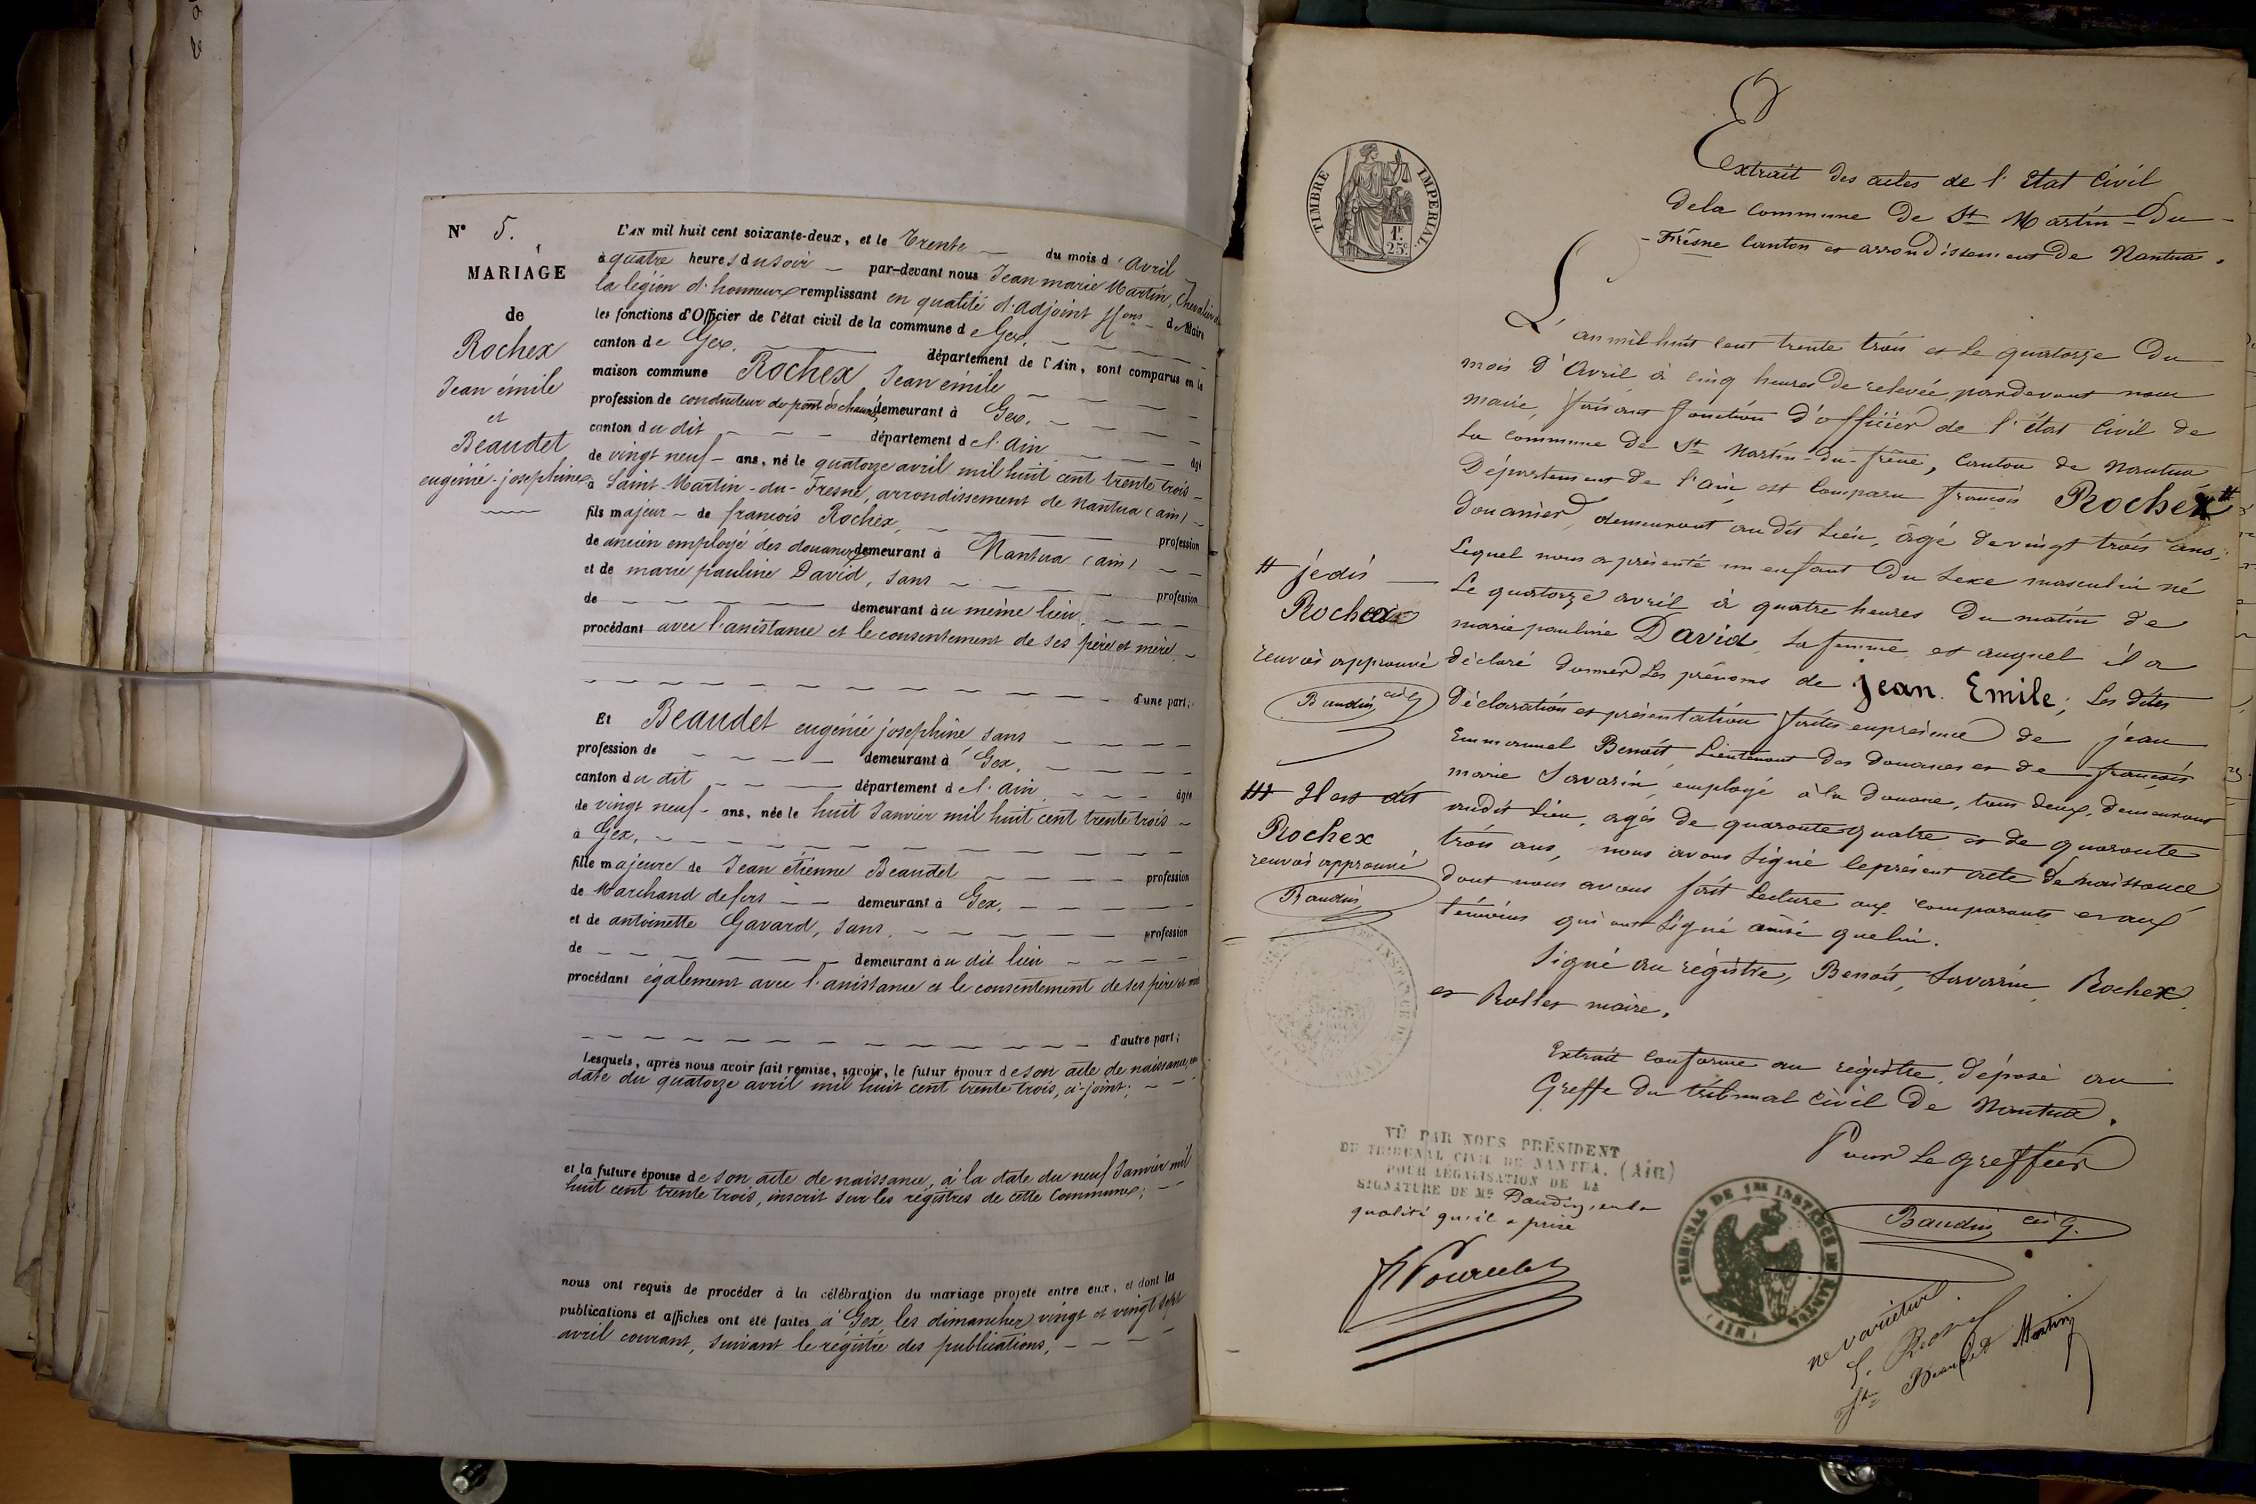 N° 5.
MARIAGE
de
Rochex
Jean émile
et
Beaudet
eugénie-josephine
L'AN mil huit cent soixante-deux, et le Trente du mois d'avril
à quatre heures du soir par-devant nous Jean marie Martin, Chevalier de
la légion d'honneur remplissant en qualité d'adjoint de Maire
les fonctions d'Officier de l'état civil de la commune de Gex,
canton de Gex, département de l'Ain, sont comparus en la
maison commune Rochex Jean émile
profession de conducteur des ponts et chaussées demeurant à Gex,
canton du dit département de l'ain âgé
de vingt neuf ans, né le quatorze avril mil huit cent trente trois
à Saint-Martin-du-Fresne, arrondissement de nantua (ain)
fils majeur de francois Rochex, profession
de ancien employé des douanes demeurant à Nantua (ain)
et de marie pauline David, sans profession
de demeurant au même lieu
procédant avec l'assistance et le consentement de ses père et mère
d'une part;
Et Beaudet eugénie josephine sans
profession de demeurant à Gex,
canton du dit département de l'ain âgée
de vingt neuf ans, née le huit Janvier mil huit cent trente trois
à Gex,
fille majeure de Jean étienne Beaudet profession
de Marchand de fers demeurant à Gex,
et de antoinette Gavard, sans profession
de demeurant au dit lieu
procédant également avec l'assistance et le consentement de ses père et mère
d'autre part;
Lesquels, après nous avoir fait remise, savoir, le futur époux de son acte de naissance, en
date du quatorze avril mil huit cent trente trois, ci-joint;
et la future épouse de son acte de naissance, à la date du neuf Janvier mil
huit cent trente trois, inscrit sur les régistres de cette Commune;
nous ont requis de procéder à la célébration du mariage projeté entre eux, et dont les
publications et affiches ont été faites à Gex, les dimanches vingt et vingt sept
avril courant, suivant le régistre des publications,
TIMBRE IMPERIAL.
1F. 25C.
Extrait des actes de l'Etat Civil
de la Commune de St Martin-Du-
-Frésne Canton et arrondissement de Nantua.
L'an mil huit cent trente trois et le quatorze Du
mois d'Avril à cinq heures De relevée, pardevant nous
maire, faisant fonction d'officier de l'état Civil de
La Commune De St Martin-du-frêne, Canton de Nantua
Département de l'ain, est Comparu françois Rochex #
Douanier, demeurant audit Lieu, âgé de vingt trois ans,
Lequel nous a présenté un enfant Du Sexe masculin né
Le quatorze avril à quatre heures Du matin de
marie pauline David, Sa femme et auquel il a
déclaré donner Les prénoms de Jean Emile; Les dites
déclaration et présentation faites en présence De jean
Emmanuel Benoit, Lieutenant Des Douanes et de françois
marie Savarin, employé à la Douane, tous deux, Demeurant
audit Lieu, agés de quarante quatre et de quarante
trois ans, nous avons Signé le présent acte De naissance
dont nous avons fait Lecture aux Comparants et aux
témoins qui ont Signé
Signé au régistre, Benoit, Savarin, Rochex
et Rollet maire.
# je dis
Rochex
renvoi approuvé
Baudin
Rochex
renvoi approuvé
Baudin
Extrait Conforme au régistre, déposé au
Greffe Du tribunal Civil De Nantua.
Pour Le greffier
Baudin
VU PAR NOUS PRÉSIDENT
DU TRIBUNAL CIVIL DE NANTUA. (Ain)
POUR LÉGALISATION DE LA
SIGNATURE DE Me Baudin, en la
qualité qu'il a prise
TRIBUNAL DE 1RE INSTANCE DE NANTUA (AIN)
ne varietur
Beaudet Martin